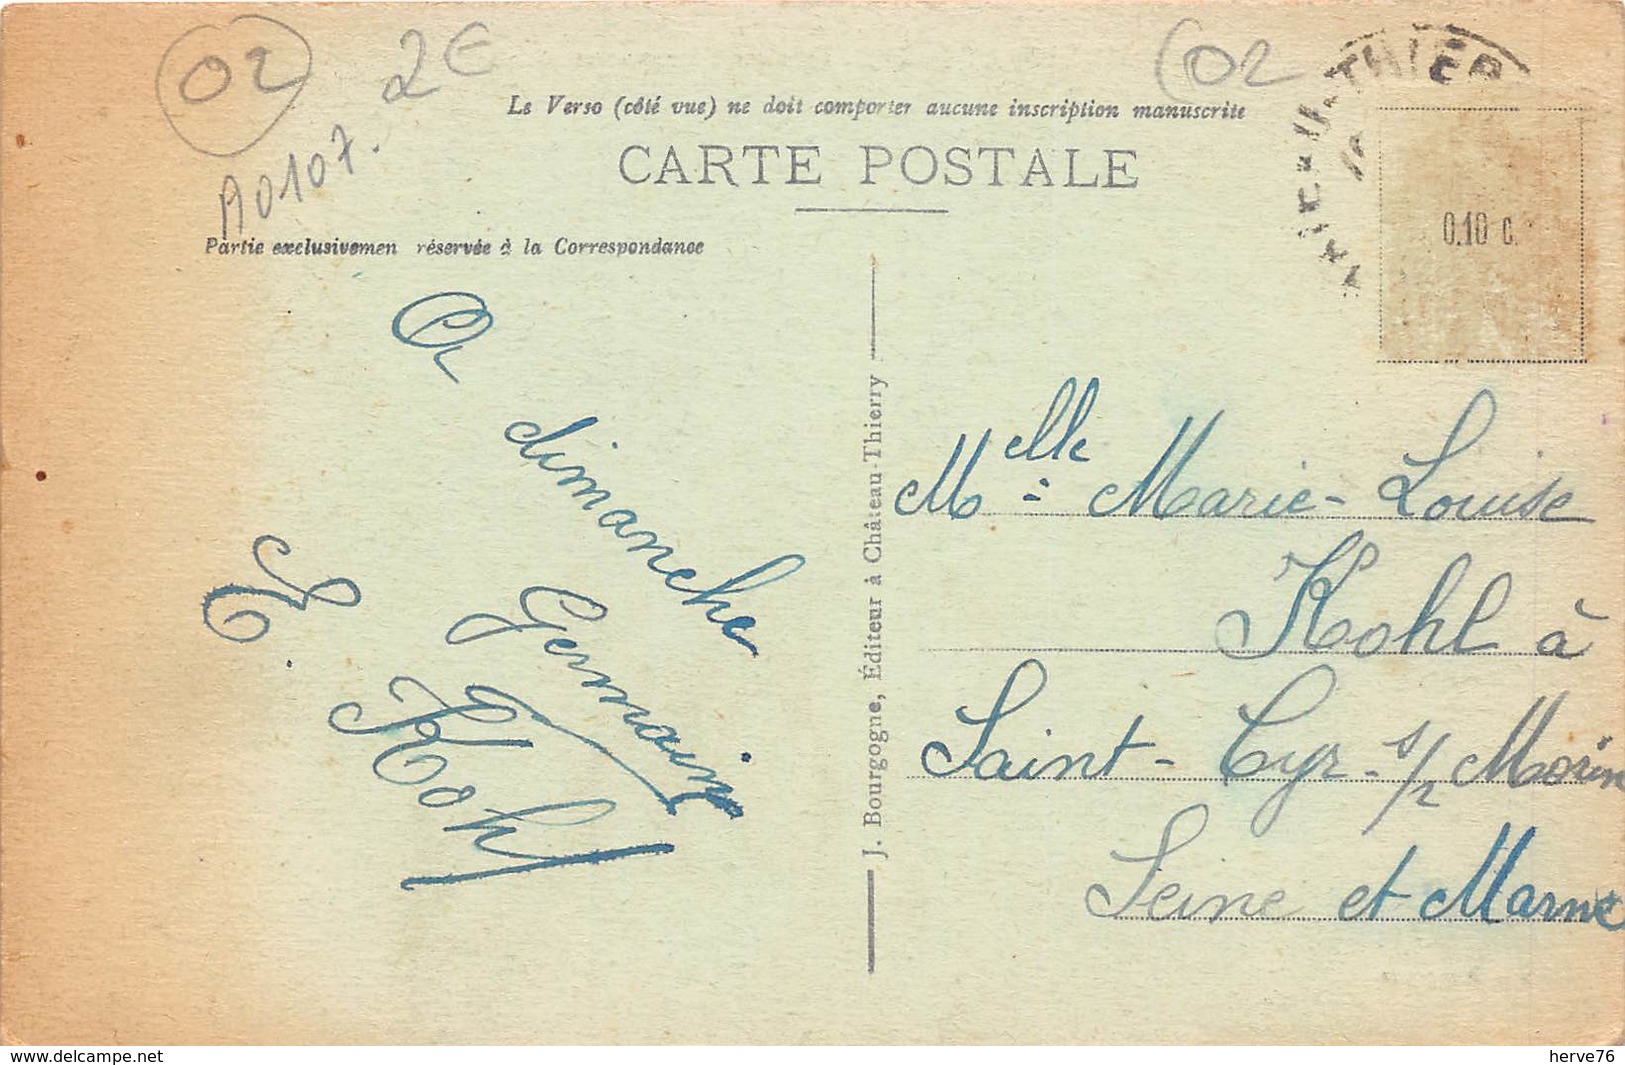 02
2€
02
A0107.
Le Verso (côté vue) ne doit comporter aucune inscription manuscrite
CARTE POSTALE
0.10 c.
Partie exclusivemen réservée à la Correspondance
A dimanche
Germain
E. Kohl
J. Bourgogne, Éditeur à Château-Thierry
Melle Marie-Louise
Kohl à
Saint-Cyr-s/ Morin
Seine et Marne
www.delcampe.net
herve76